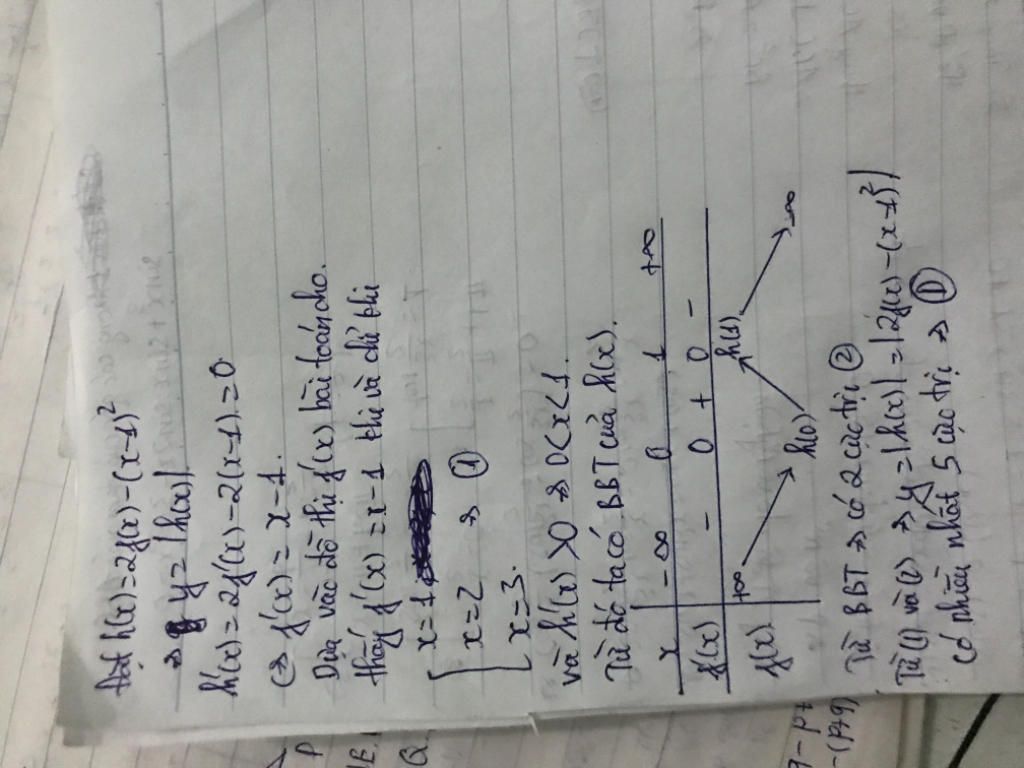 Đặt h(x) = 2f(x) - (x-1)²
⇒ y = |h(x)|
h'(x) = 2f'(x) - 2(x-1) = 0
⇔ f'(x) = x - 1.
Dựa vào đồ thị f'(x) bài toán cho.
thấy f'(x) = x - 1 khi và chỉ khi
x = 1
x = 2 ⇒ ①
x = 3.
và h'(x) > 0 ⇒ 0 < x < 1.
Từ đó ta có BBT của h(x).
x -∞ 0 1 +∞
f'(x) - 0 + 0 -
f(x) +∞ h(0) h(1) -∞
Từ BBT ⇒ có 2 cực trị ②
Từ (1) và (2) ⇒ y = |h(x)| = |2f(x) - (x-1)²|
có nhiều nhất 5 cực trị ⇒ Ⓓ